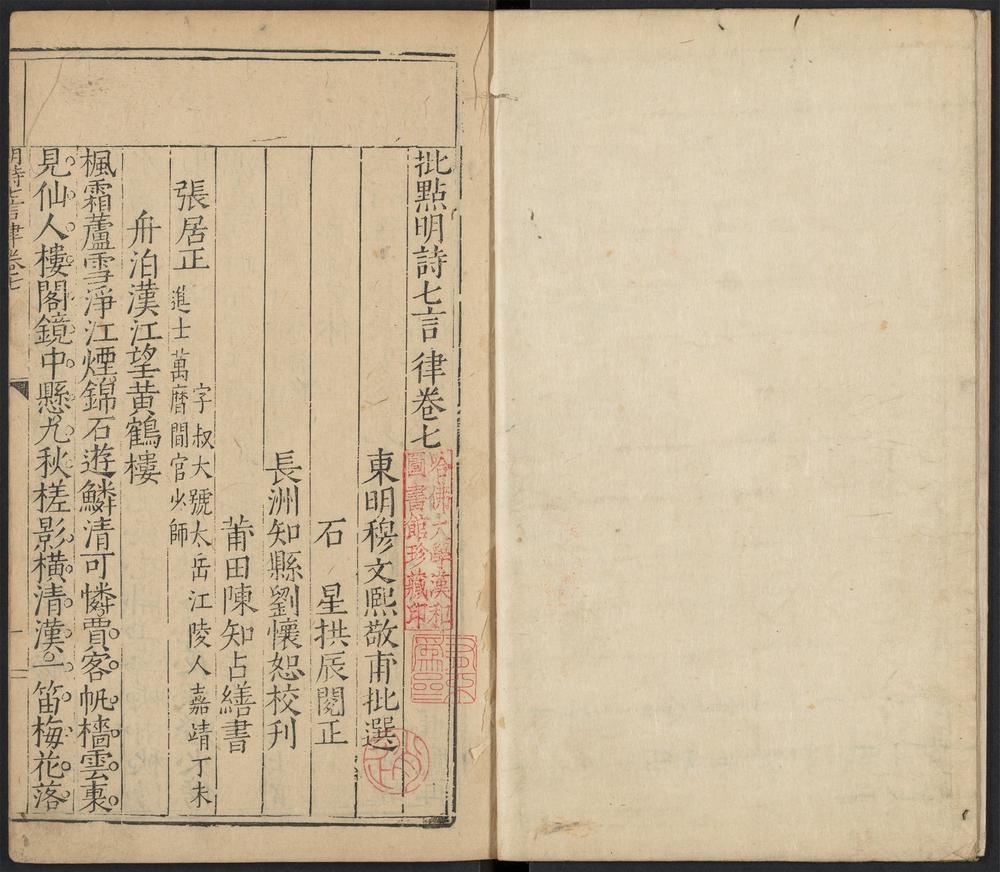 批點明詩七言律卷七
東明穆文熙敬甫批選
石星拱辰閱正
長洲知縣劉懷恕校刊
莆田陳知占繕書
張居正 字叔大號太岳江陵人嘉靖丁未進士萬曆間官少師
舟泊漢江望黃鶴樓
楓霜蘆雪淨江煙錦石遊鱗清可憐賈客帆檣雲裏
見仙人樓閣鏡中懸九秋槎影橫清漢一笛梅花落
明詩七言律卷七
哈佛大學漢和
圖書館珍藏印